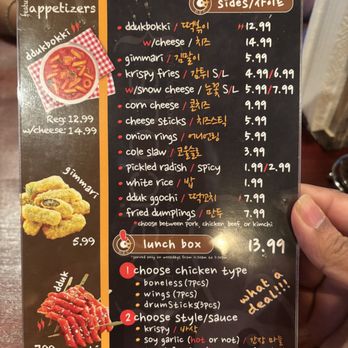 appetizers
ddukbokki
Reg: 12.99
w/cheese: 14.99
gimmari
5.99
dduk
7.99
sides/사이드
ddukbokki / 떡볶이 12.99
w/cheese / 치즈 14.99
gimmari / 김말이 5.99
krispy fries / 감튀 S/L 4.99/6.99
w/snow cheese / 눈꽃 S/L 5.99/7.99
corn cheese / 콘치즈 9.99
cheese sticks / 치즈스틱 5.99
onion rings / 어니언링 5.99
cole slaw / 코울슬로 3.99
pickled radish / spicy 1.99/2.99
white rice / 밥 1.99
dduk ggochi / 떡꼬치 7.99
fried dumplings / 만두 7.99
*choose between pork, chicken, beef or kimchi
lunch box 13.99
*served only on weekdays from 11:30am to 3:30pm
1 choose chicken type
• boneless (7pcs)
• wings (7pcs)
• drumsticks(3pcs)
what a
deal!!!
2 choose style/sauce
• krispy / 바삭
• soy garlic (hot or not) / 간장 마늘